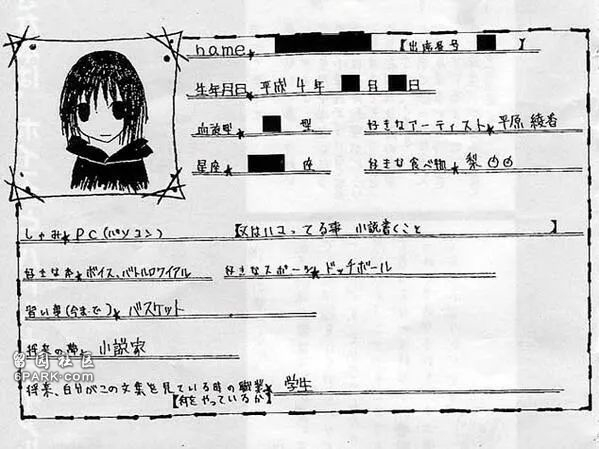 name★ 【出席番号 】
生年月日★平成4年 月 日
血液型★ 型 好きなアーティスト★平原綾香
星座★ 座 好きな食べ物★梨
しゅみ★PC(パソコン) 【又はハマってる事 小説書くこと 】
好きな本★ボイス、バトルロワイアル 好きなスポーツ★ドッチボール
習い事(今まで)★バスケット
将来の夢★小説家
将来、自分がこの文集を見ている時の職業★学生
【何をやっているか】
留园社区
6PARK.com